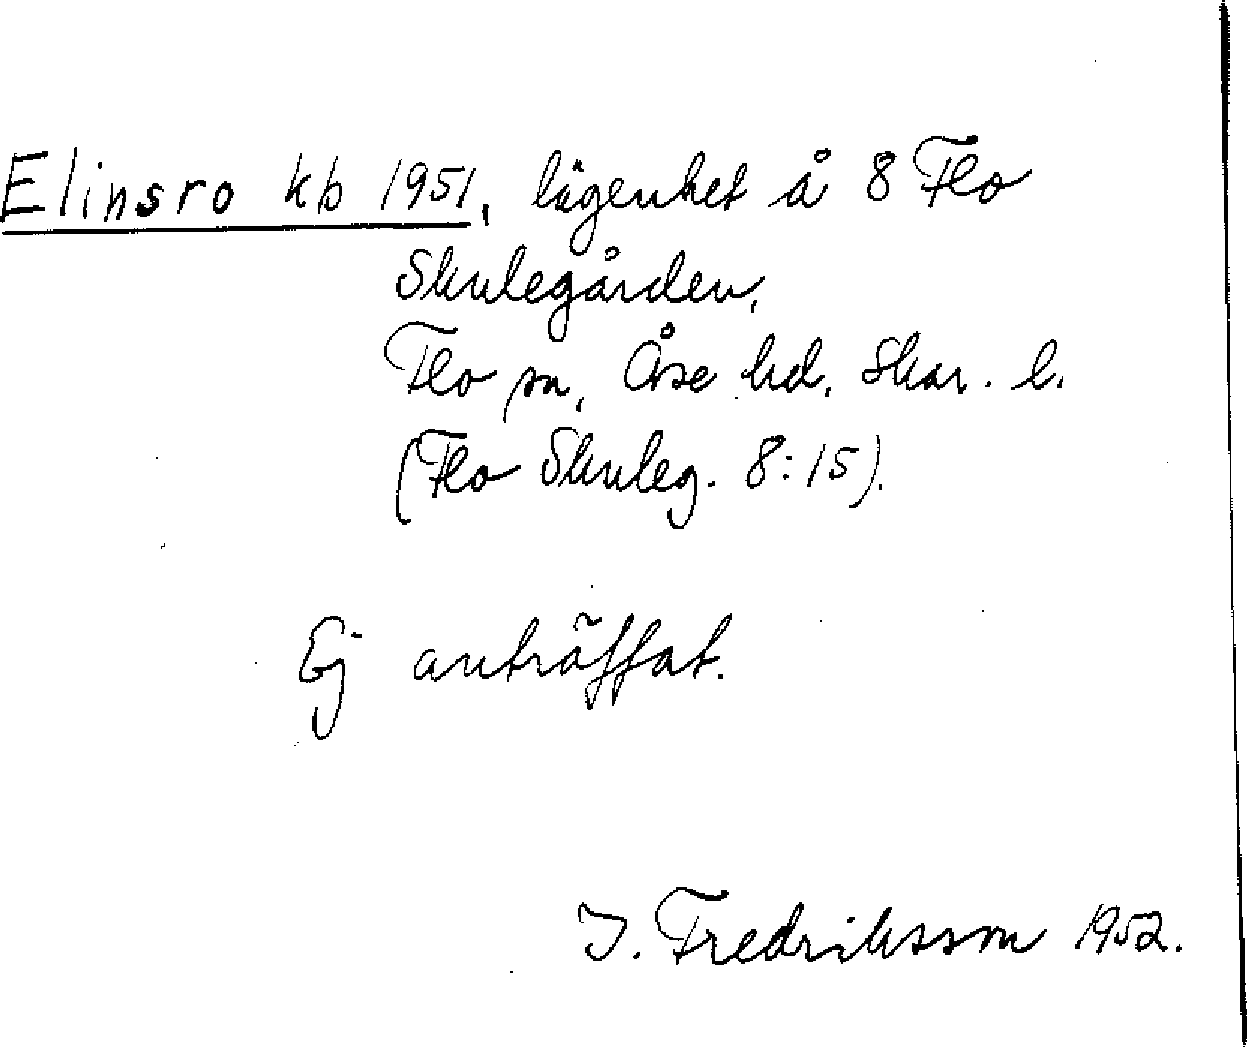 Elinsro kb 1951, lägenhet å 8 Flo
Skulegården,
Flo sn, Åse hd, Skar. l.
(Flo Skuleg. 8:15).
Ej anträffat.
I. Fredriksson 1952.